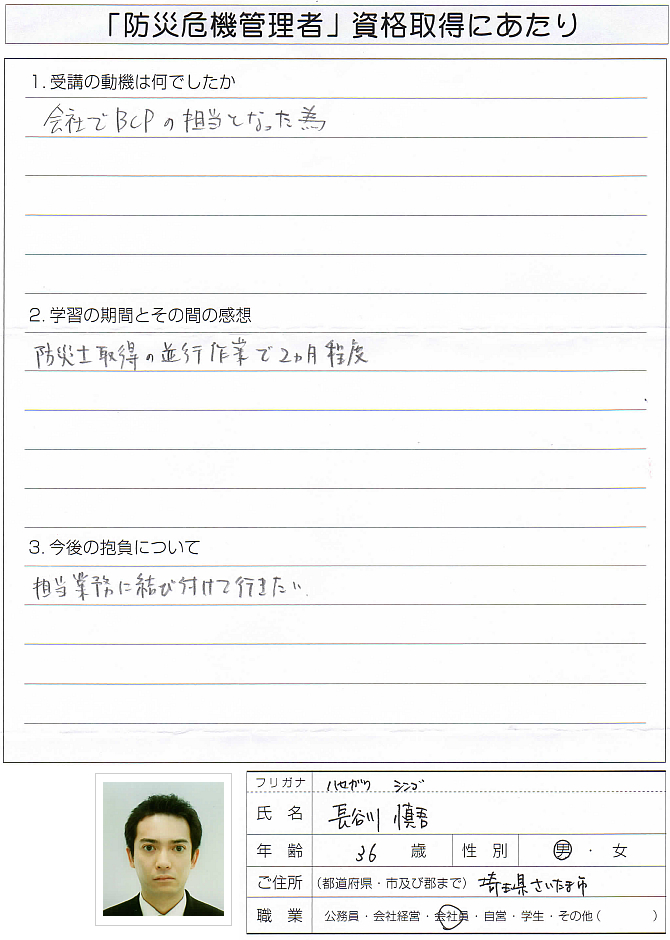 「防災危機管理者」資格取得にあたり
1. 受講の動機は何でしたか
会社でBCPの担当となった為
2. 学習の期間とその間の感想
防災士取得の並行作業で2ヵ月程度
3. 今後の抱負について
担当業務に結び付けて行きたい.
フリガナ ハセガワ シンゴ
氏 名 長谷川 慎吾
年 齢 36 歳 性 別 男 ・ 女
ご住所 (都道府県・市及び郡まで) 埼玉県さいたま市
職 業 公務員・会社経営・会社員・自営・学生・その他( )